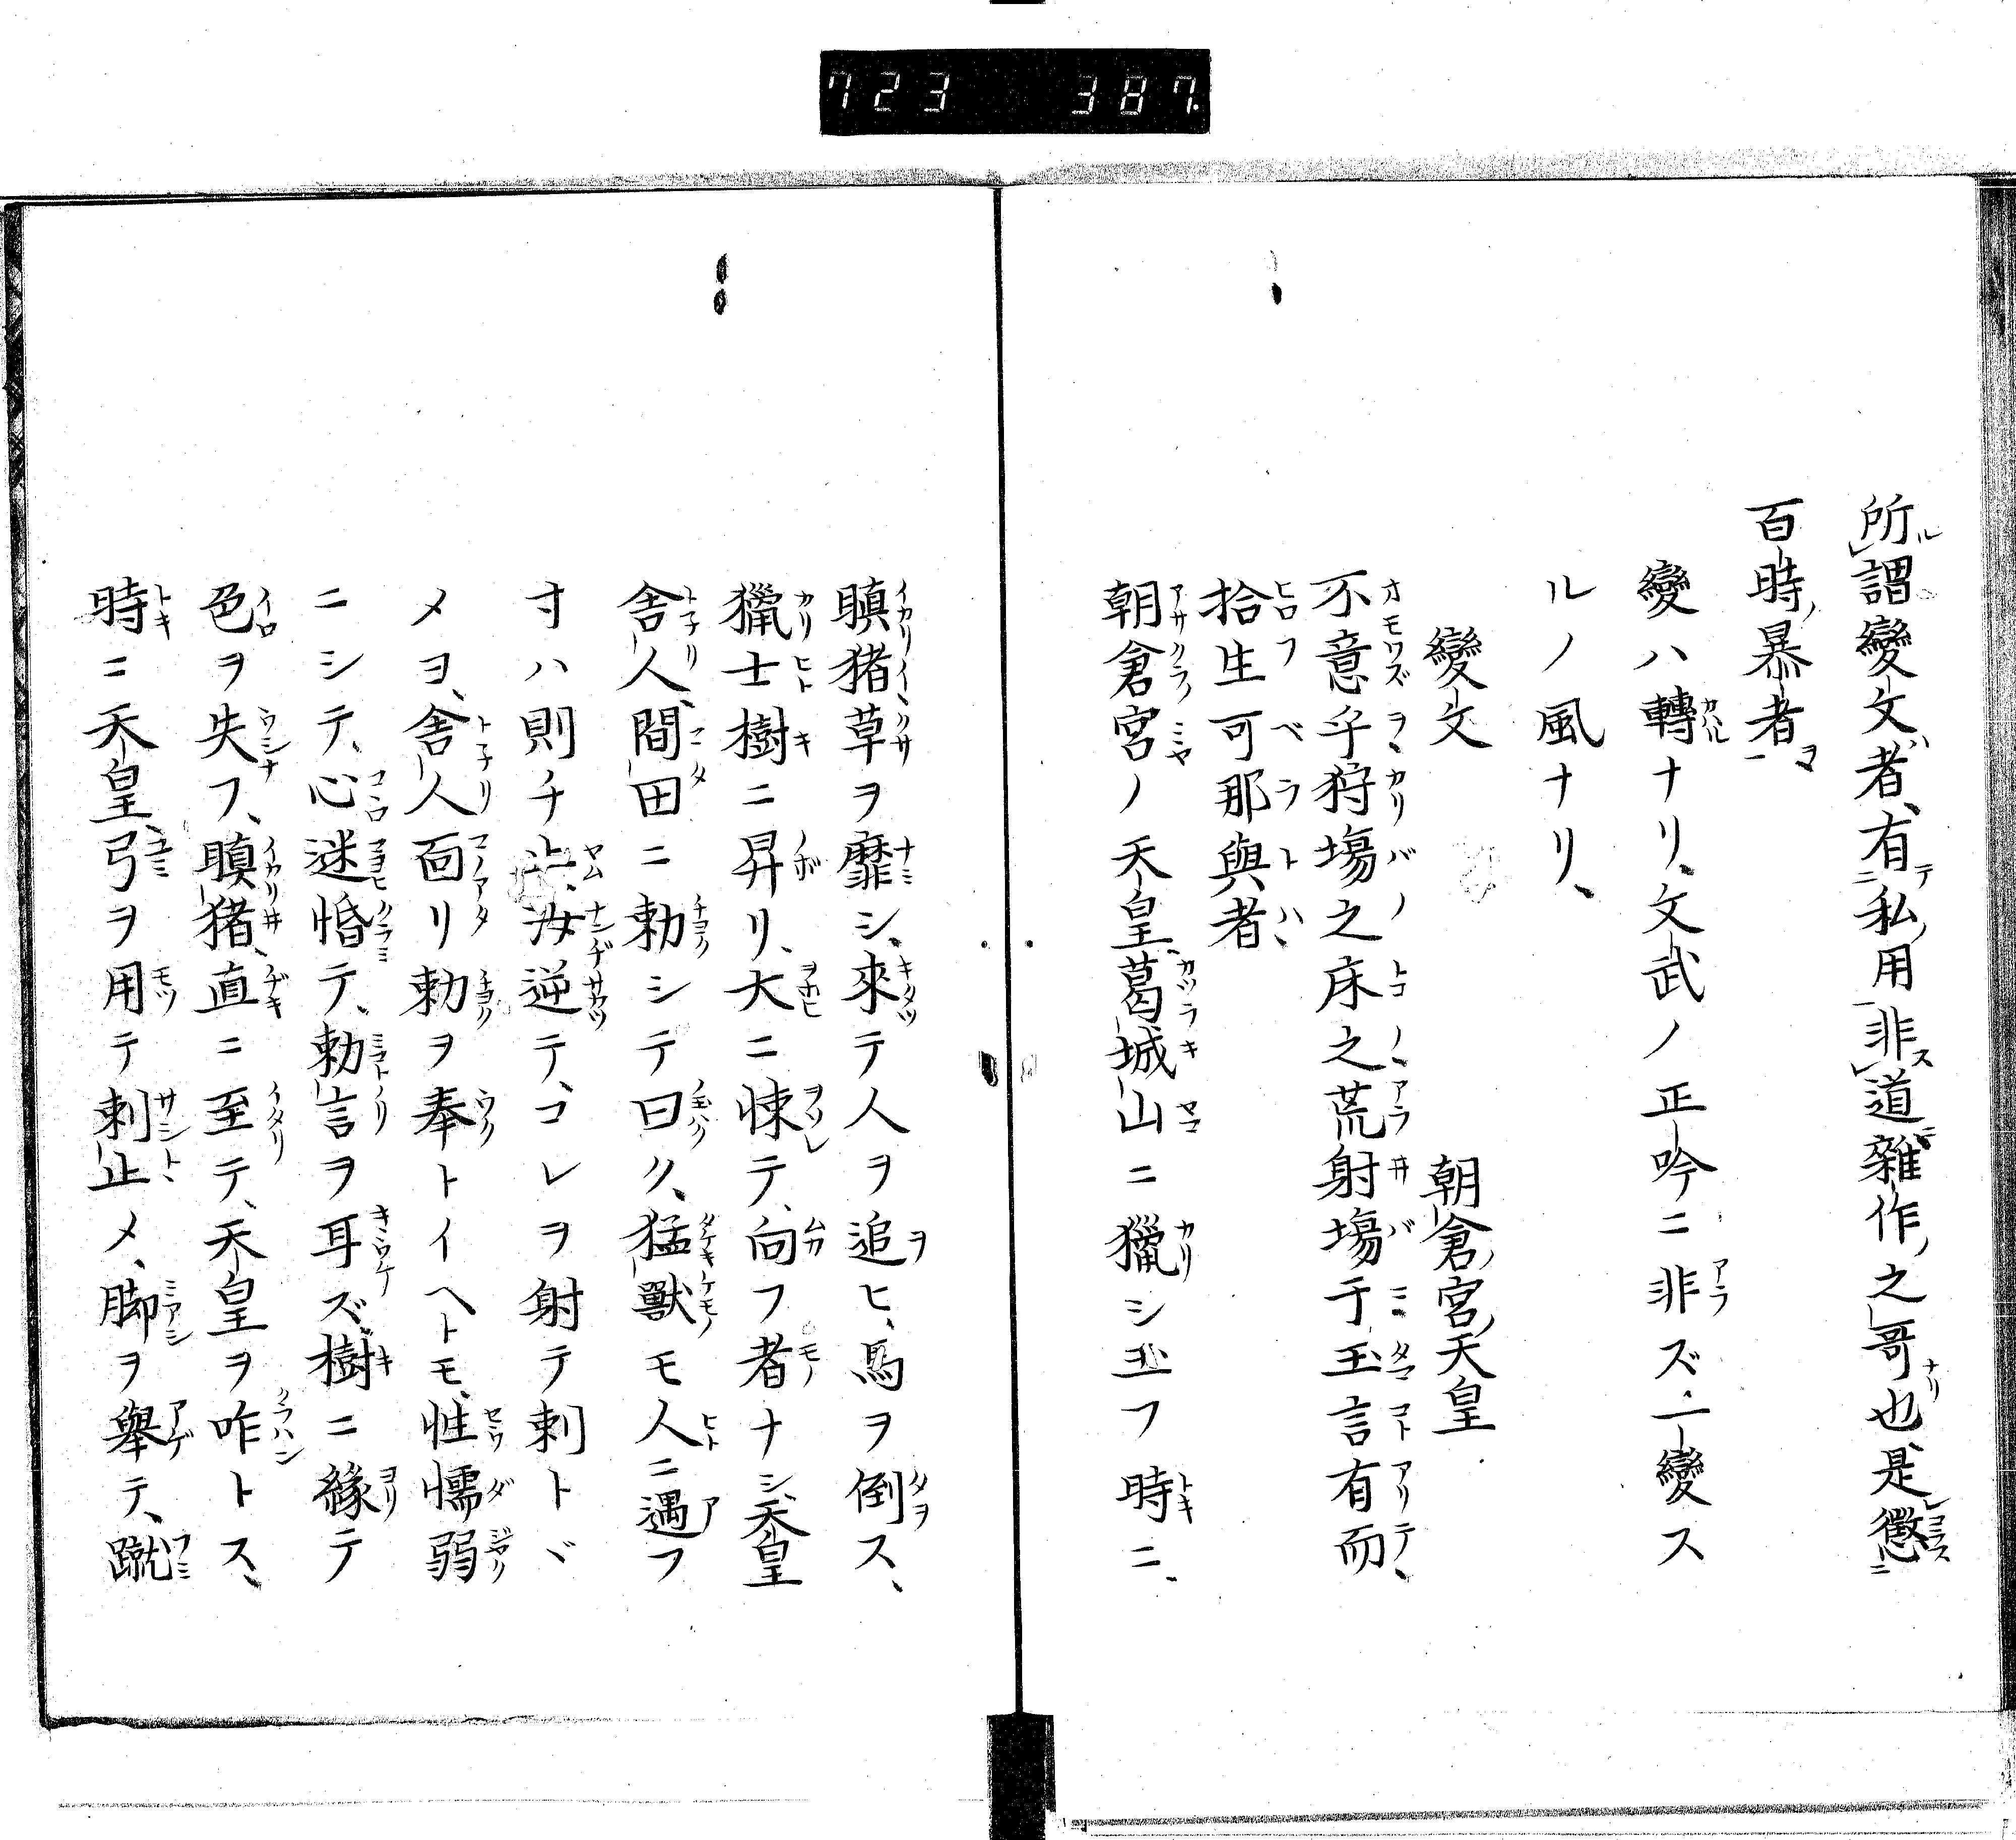 723 387
所謂變文者、有私用非道雜作之哥也、是懲
百時暴者
變ハ轉ナリ、文武ノ正吟ニ非ズ、一變ス
ルノ風ナリ、
變文 朝倉宮天皇
不意乎狩場之床之荒射場于玉言有而、
拾生可那與者
朝倉宮ノ天皇、葛城山ニ獵シ玉フ時ニ、
瞋猪草ヲ靡シ、來テ人ヲ追ヒ、馬ヲ倒ス、
獵士樹ニ昇リ、大ニ悚テ、向フ者ナシ、天皇
舎人、間田ニ勅シテ曰ク、猛獸モ人ニ遇フ
寸ハ則チ止、汝逆テ、コレヲ射テ刺トヾ
メヨ、舎人面リ勅ヲ奉トイヘトモ、性懦弱
ニシテ、心迷惛テ、勅言ヲ耳ズ、樹ニ緣テ
色ヲ失フ、瞋猪、直ニ至テ、天皇ヲ咋トス、
時ニ天皇、弓ヲ用テ刺止メ、脚ヲ舉テ、蹴